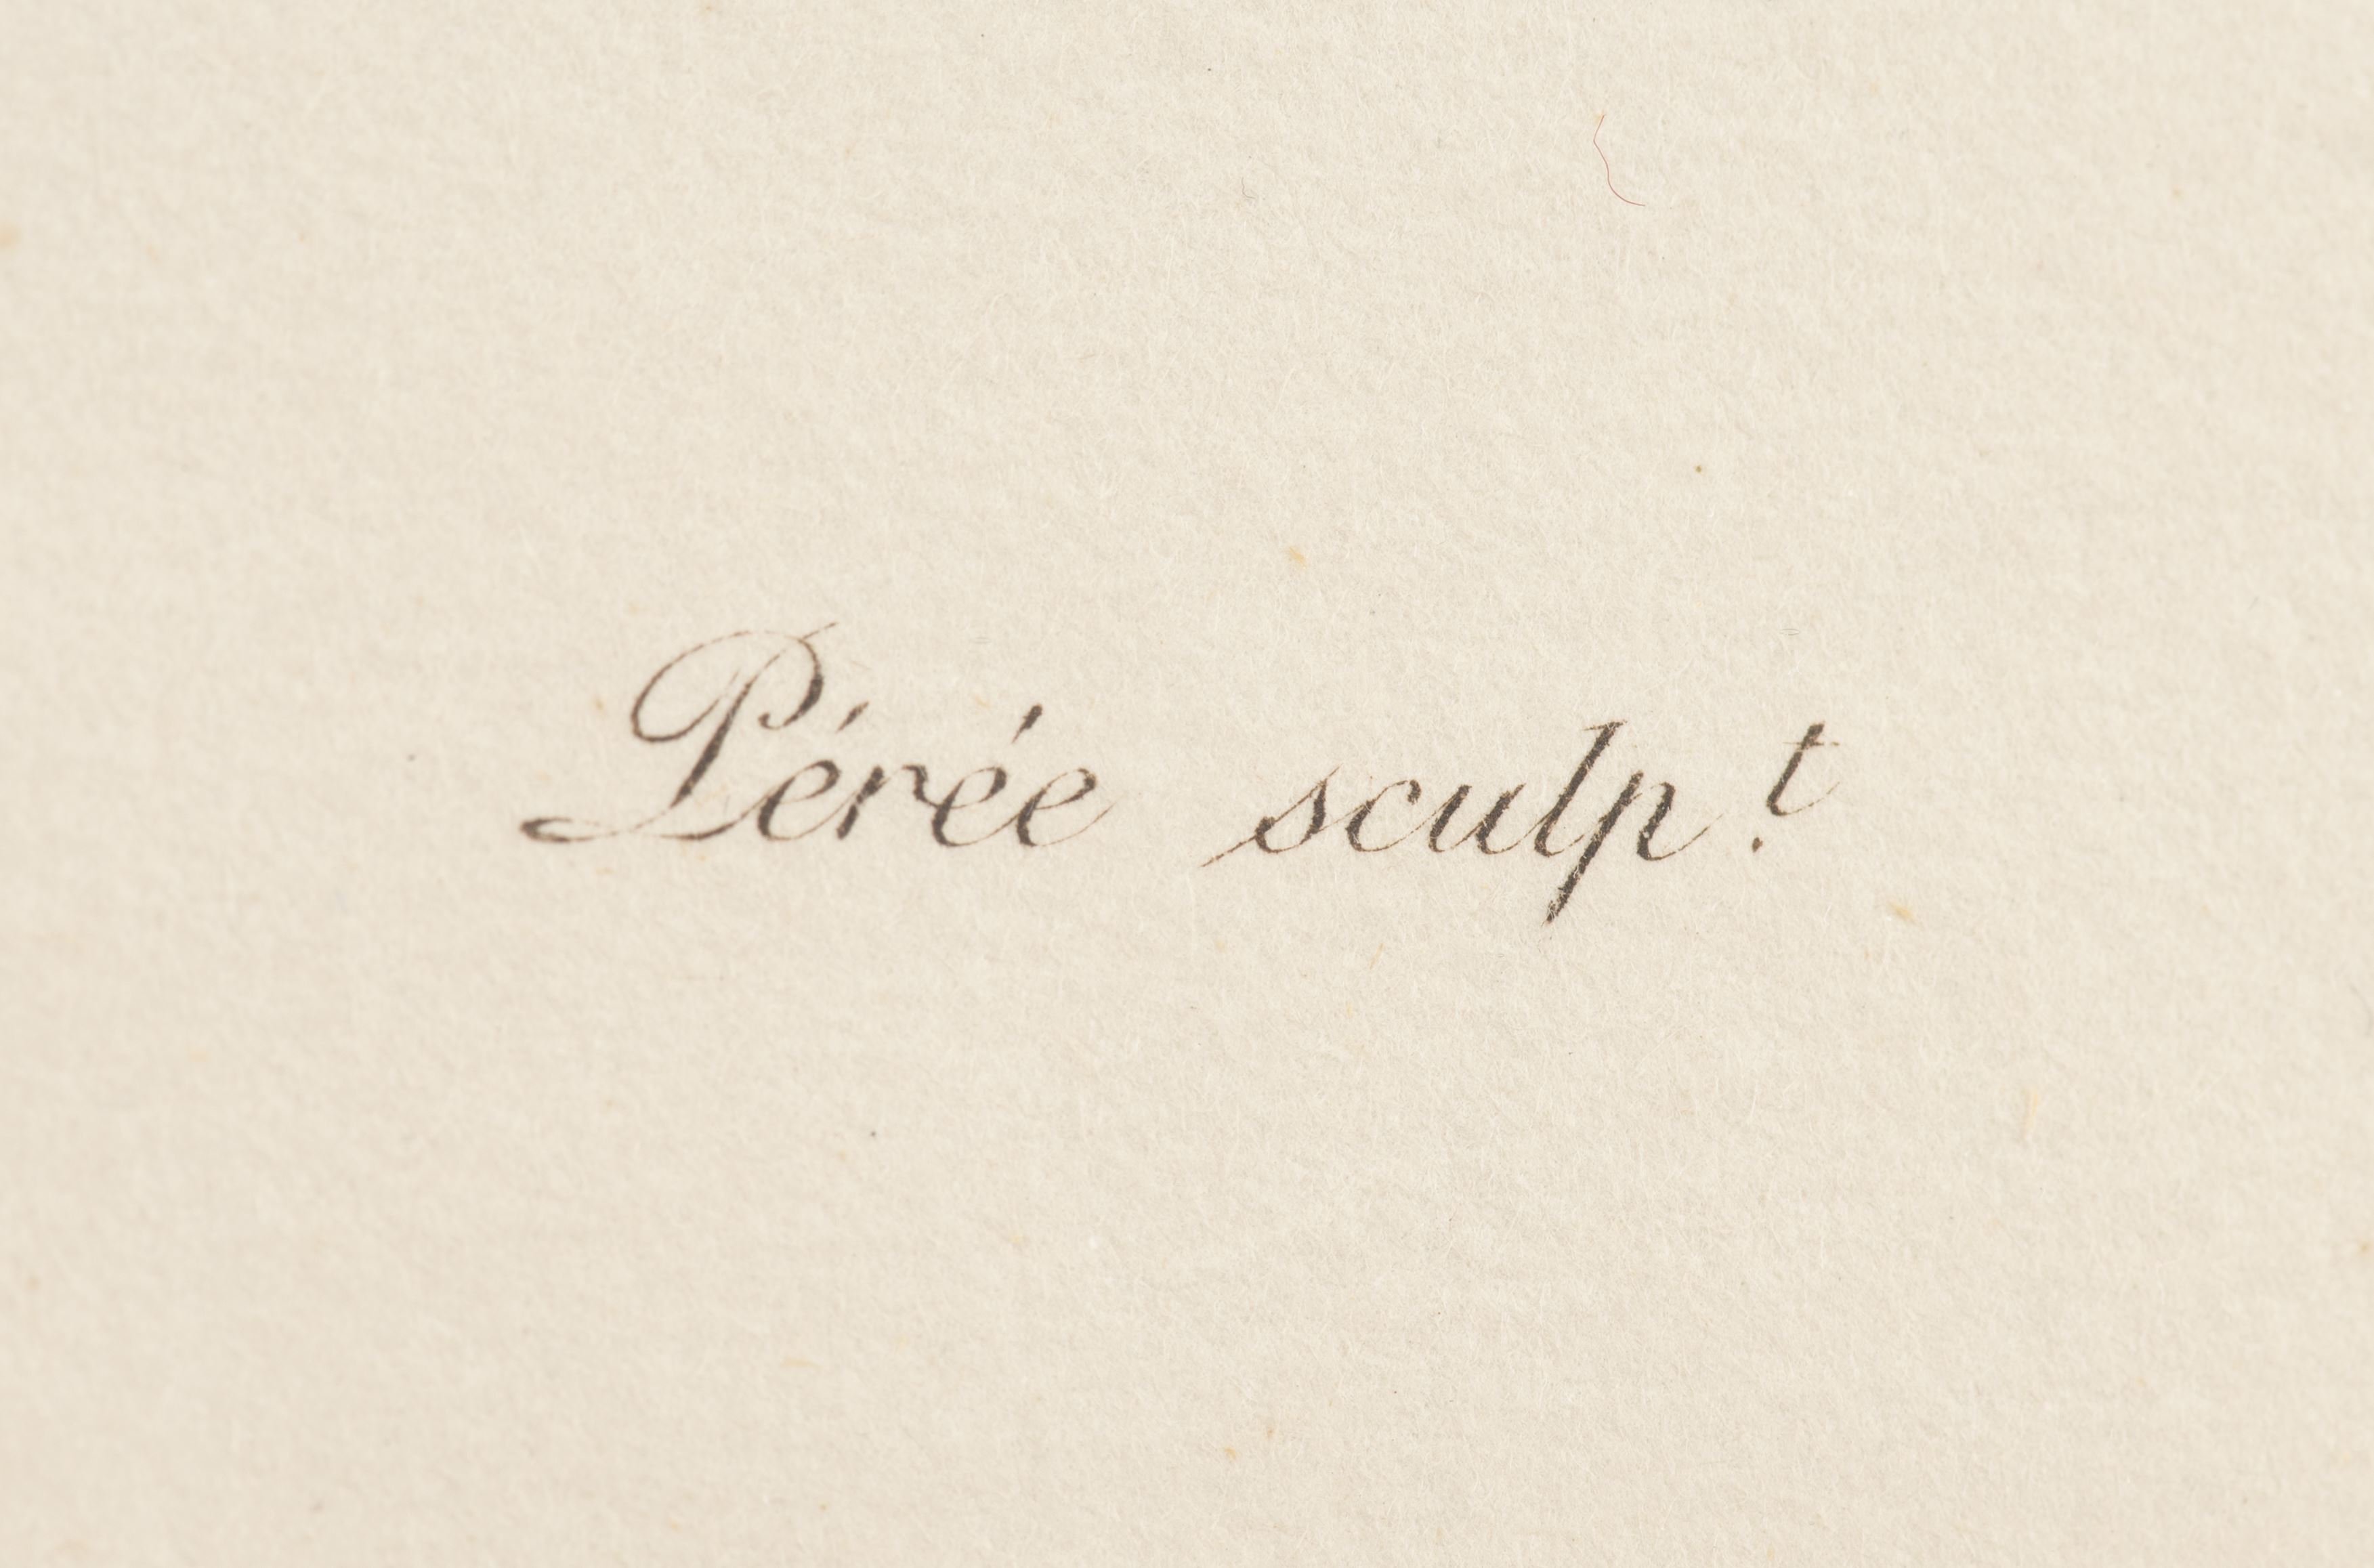 Pérée sculp.t